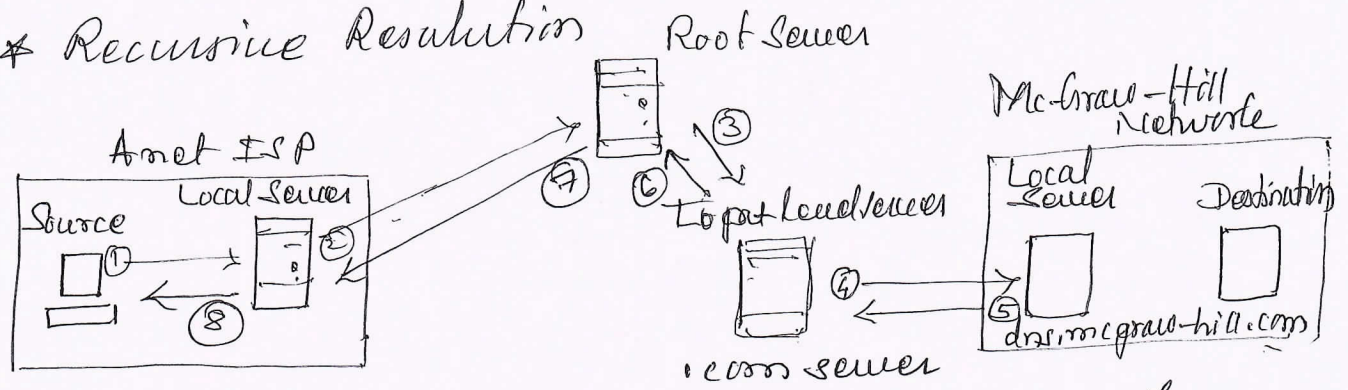 * Recursive Resolution
Root Server
Mc-Graw-Hill
Network
Anet ISP
Local Server
Source
1
2
7
3
6
Top level server
4
5
.com server
8
Local
Server
Destination
dns.mcgraw-hill.com